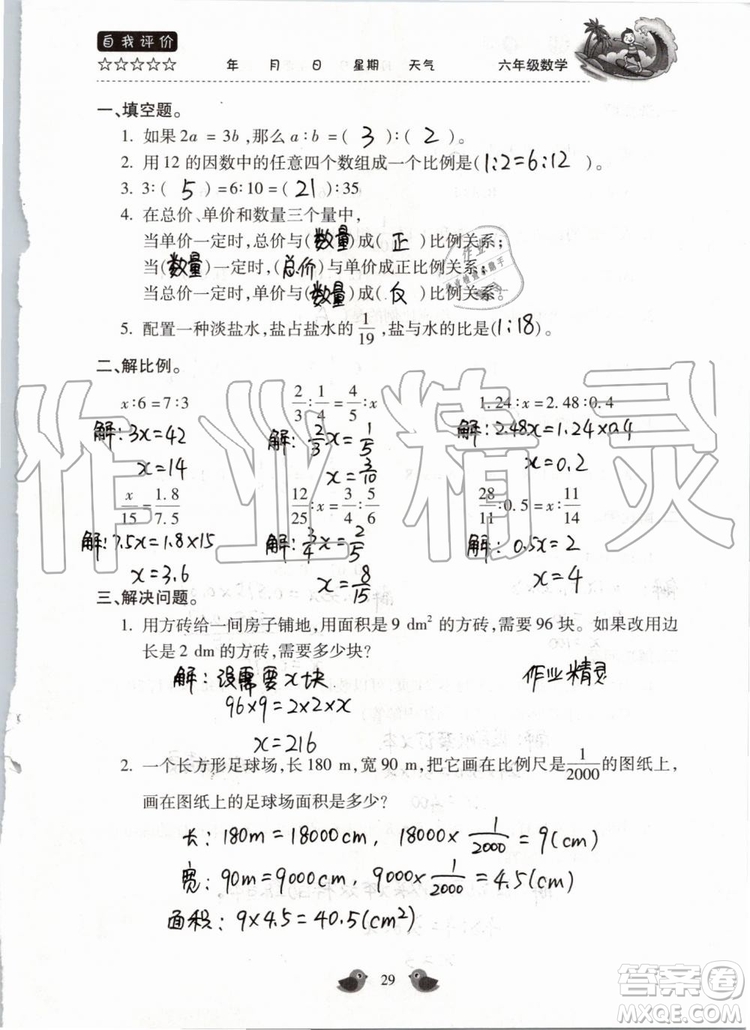 自我评价
☆☆☆☆☆ 年 月 日 星期 天气 六年级数学
一、填空题。
1. 如果 2a = 3b，那么 a∶b = ( 3 )∶( 2 )。
2. 用 12 的因数中的任意四个数组成一个比例是( 1:2=6:12 )。
3. 3∶( 5 ) = 6∶10 = ( 21 )∶35
4. 在总价、单价和数量三个量中，
当单价一定时，总价与( 数量 )成( 正 )比例关系；
当( 数量 )一定时，( 总价 )与单价成正比例关系；
当总价一定时，单价与( 数量 )成( 反 )比例关系。
5. 配置一种淡盐水，盐占盐水的 1/19，盐与水的比是( 1:18 )。
二、解比例。
x∶6 = 7∶3 2/3∶1/4 = 4/5∶x 1.24∶x = 2.48∶0.4
解：3x=42 解：2/3x=1/5 解：2.48x=1.24×0.4
x=14 x=3/10 x=0.2
x/15 = 1.8/7.5 12/25∶x = 3/4∶5/6 28/11∶0.5 = x∶11/14
解：7.5x=1.8×15 解：3/4x=2/5 解：0.5x=2
x=3.6 x=8/15 x=4
三、解决问题。
1. 用方砖给一间房子铺地，用面积是 9 dm² 的方砖，需要 96 块。如果改用边
长是 2 dm 的方砖，需要多少块？
解：设需要x块 作业精灵
96×9=2×2×x
x=216
2. 一个长方形足球场，长 180 m，宽 90 m，把它画在比例尺是 1/2000 的图纸上，
画在图纸上的足球场面积是多少？
长：180m=18000cm，18000×1/2000=9(cm)
宽：90m=9000cm，9000×1/2000=4.5(cm)
面积：9×4.5=40.5(cm²)
29
作业精灵
答案圈
MXQE.COM